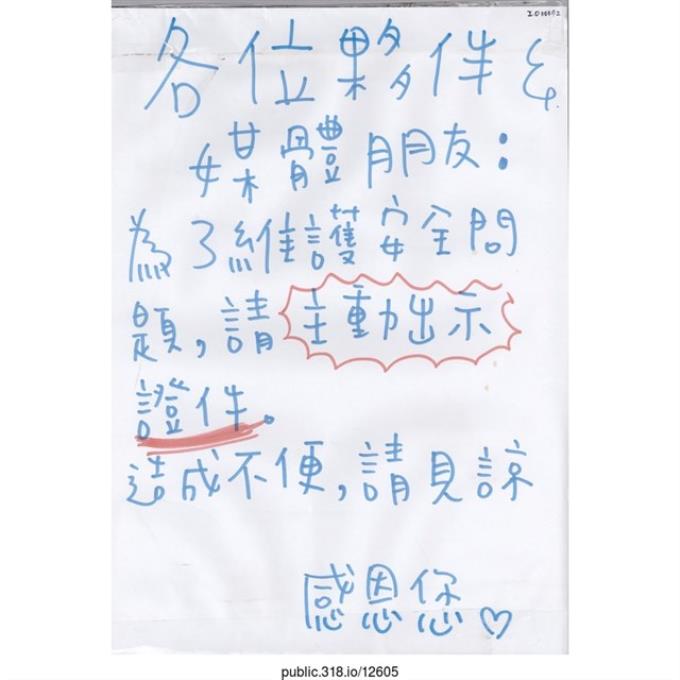 各位夥伴&
媒體朋友:
為了維護安全問
題,請主動出示
證件。
造成不便,請見諒
感恩您♡
public.318.io/12605